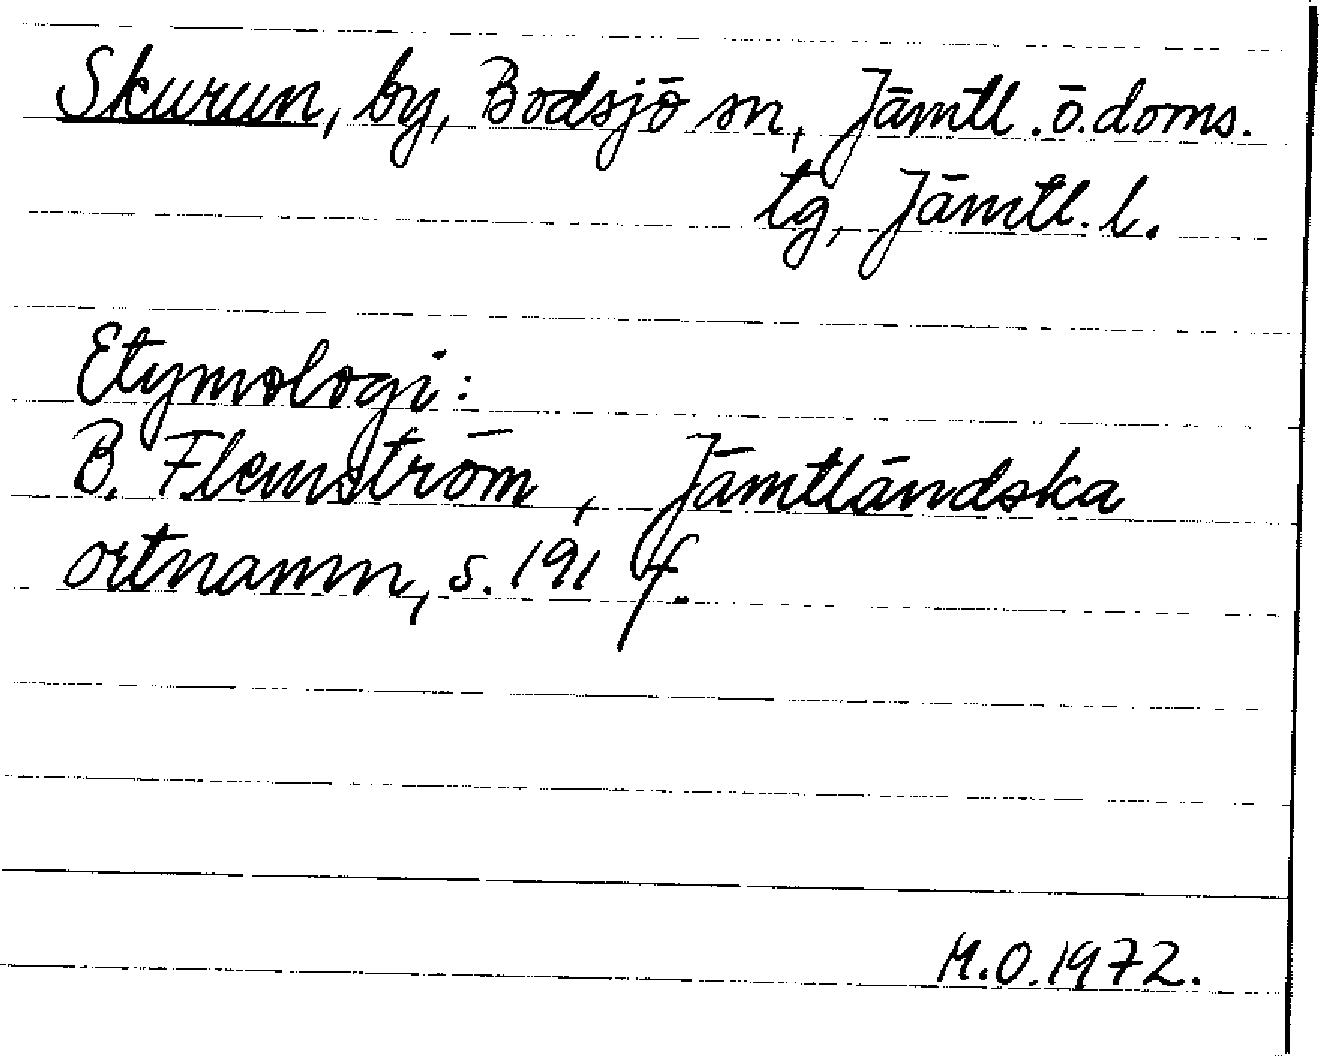 Skurun, by, Bodsjö sn, Jämtl.ö.doms.
tg, Jämtl.l.
Etymologi:
B. Flemström, Jämtländska
ortnamn, s. 191 f.
M.O.1972.